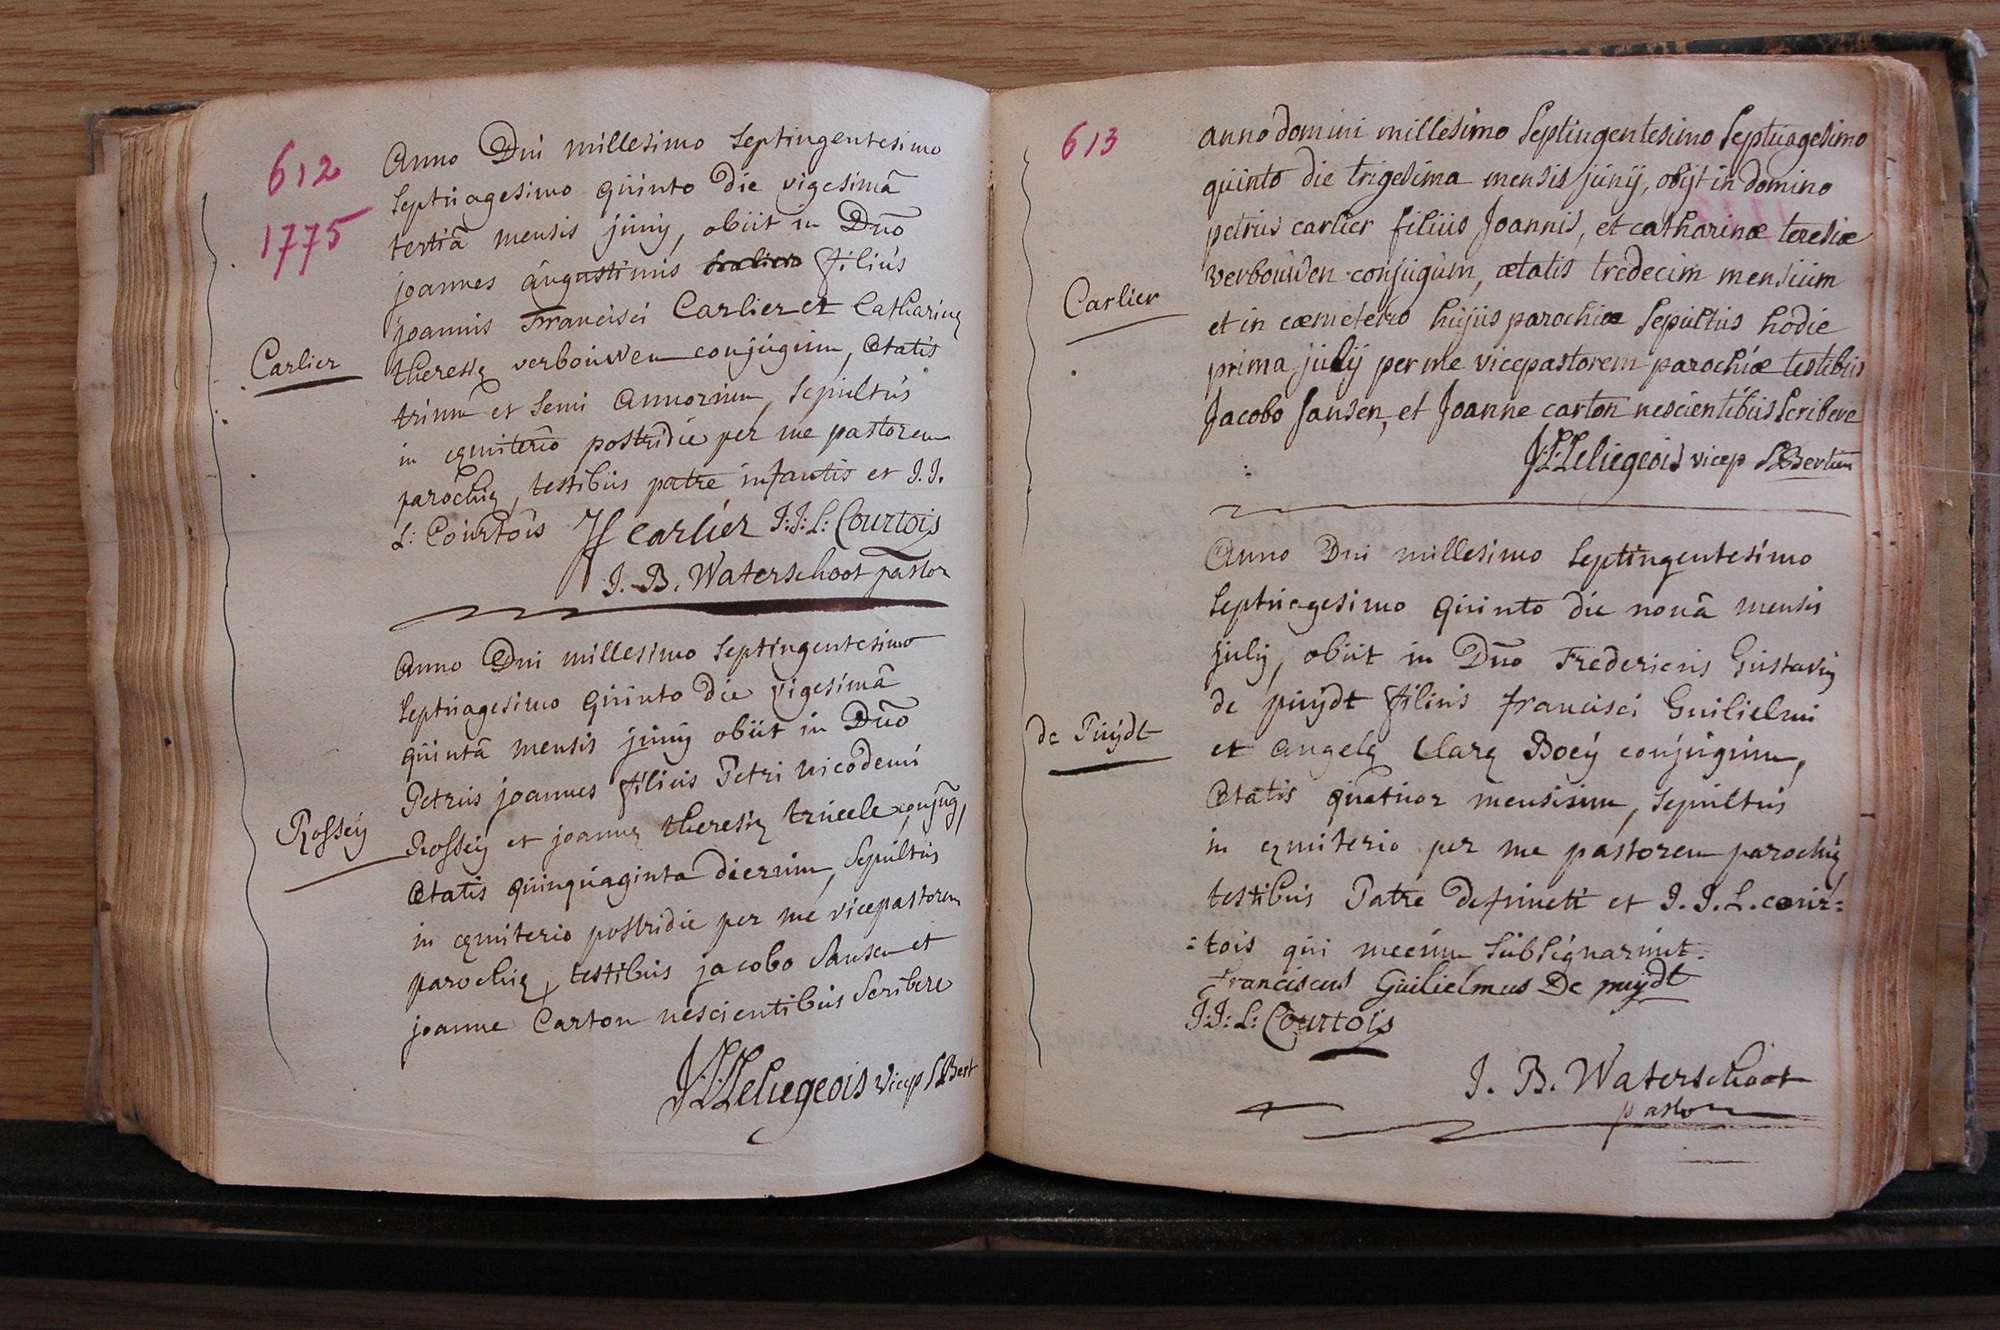 612
1775
Anno Dni millesimo septingentesimo
septuagesimo quinto die vigesimâ
tertiâ mensis junij, obiit in Dño
joannes augustinus filius
joannis Francisci Carlier et Catharinę
Carlier
theresię verbouwen conjugum, ætatis
trium et semi annorum, sepultus
in cęmiterio postridie per me pastorem
parochię, testibus patre infantis et J.J.
L: Courtois JF carlier J:J:L: Courtois
J. B. Waterschoot pastor
Anno Dni millesimo septingentesimo
septuagesimo quinto die vigesimâ
quintâ mensis junij obiit in Dño
Petrus joannes filius Petri nicodemi
Rossey
Rossey et joannę theresię trueele conjug,
ætatis quinquaginta dierum, sepultus
in cęmiterio postridie per me vicepastorem
parochię, testibus jacobo Sansen et
joanne Carton nescientibus scribere
J:L:Leliegeois vicep SBert
613
anno domini millesimo septingentesimo septuagesimo
quinto die trigesima mensis junij, obijt in domino
petrus carlier filius Joannis, et catharinæ teresiæ
verbouwen conjugum, ætatis tredecim mensium
Carlier
et in cæmeterio hujus parochiæ sepultus hodie
prima julij per me vicepastorem parochiæ testibus
Jacobo Sansen, et Joanne carton nescientibus scribere
J:L:Leliegeois vicep SBertin
Anno Dni millesimo septingentesimo
septuagesimo quinto die nonâ mensis
julij, obiit in Dño Fredericus Gustavus
de puijdt filius francisci Guilielmi
de Puijdt
et angelę Clarę Boeij conjugum,
ætatis quatuor mensium, sepultus
in cęmiterio per me pastorem parochię
testibus Patre defuncti et J. J. L. cour=
=tois qui mecum subsignarunt.
Franciscus Guilielmus De puijdt
J:J:L: Courtois
J. B. Waterschoot
pastor